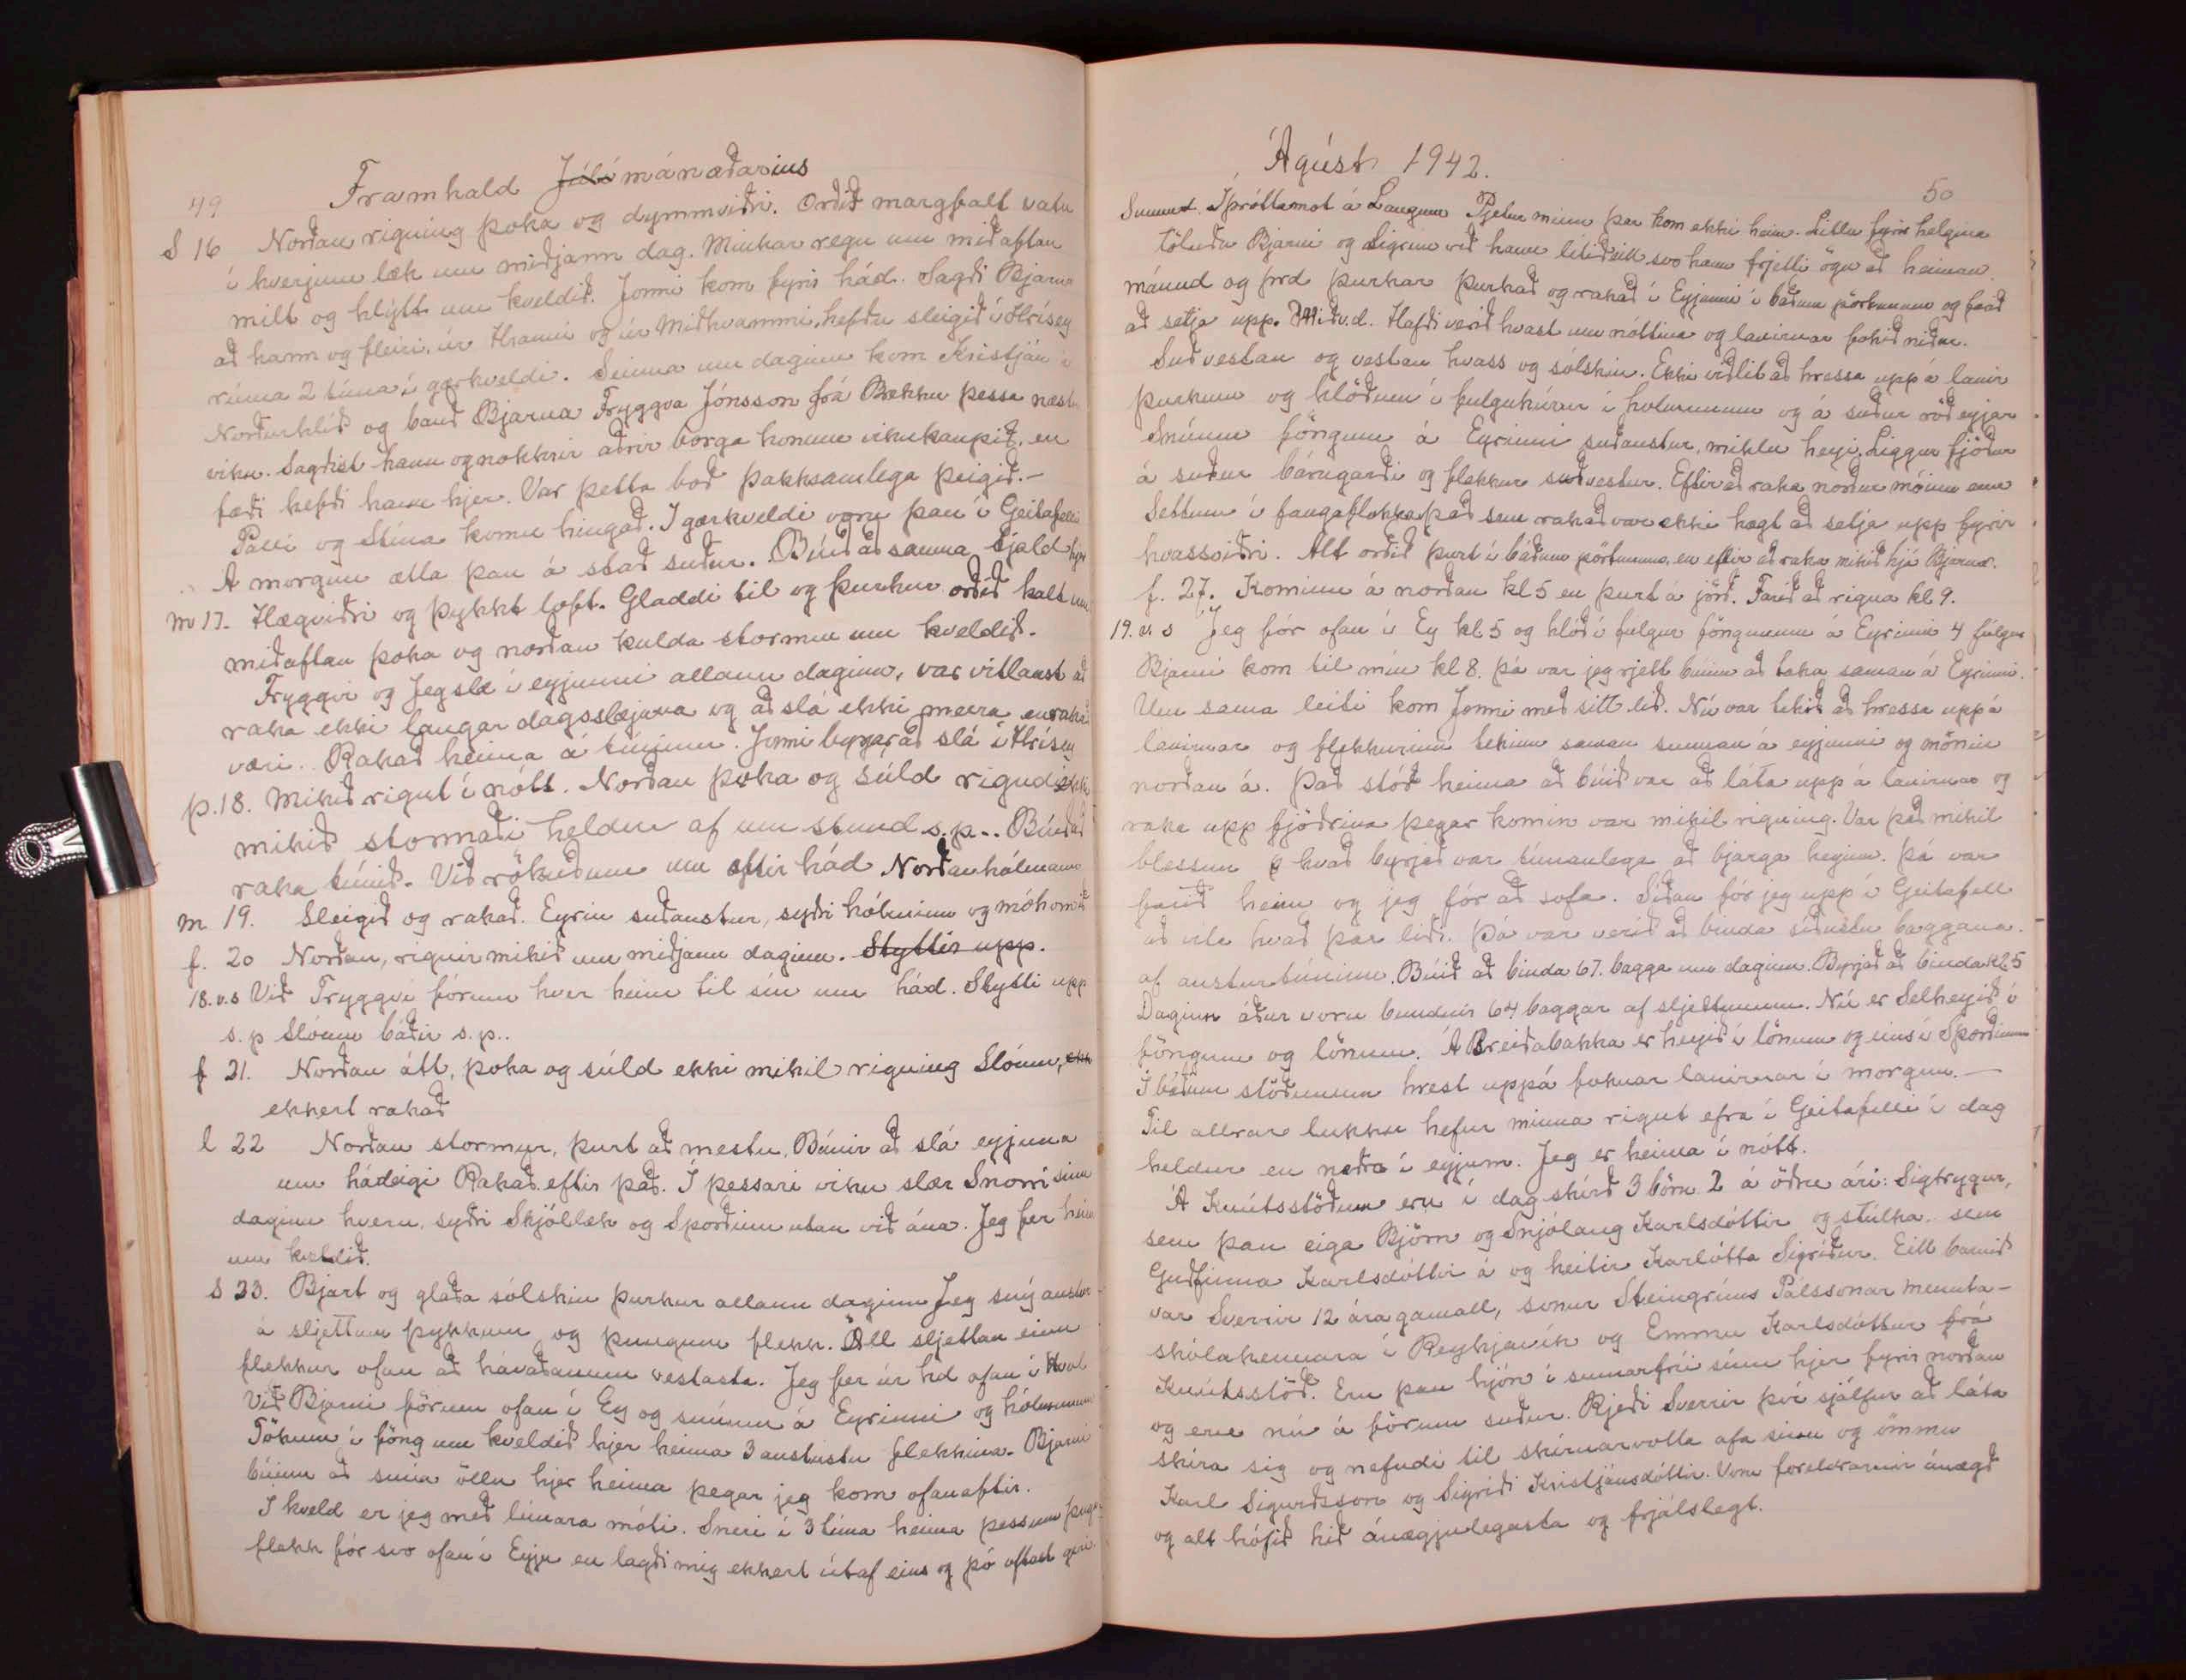 49
Framhald Júlí mánaðarins
S 16 Norðan rigning þoka og dymmviðri. Orðið margfalt vatn
í hverjum læk um miðjann dag. Minkar regn um miðaftan
milt og hlýtt um kveldið. Jonni kom fyrir hád. Sagði Bjarna
að hann og fleiri, úr Hrauni og úr Miðhvammi, hefðu sleigið í Hrísey
rúma 2 tíma í gærkveldi. Seinna um daginn kom Kristján í
Norðurhlíð og bauð Bjarna Tryggva Jónsson frá Brekku þessa næstu
viku. Sagðist hann og nokkrir aðrir borga honum vikukaupið, en
fæði hefði hann hjer. Var þetta boð þakksamlega þeigið.-
Palli og Stína komu hingað. I gærkveldi voru þau í Geitafelli
A morgun ætla þau á stað suður. Búið að sauma tjald
m 17. Hægviðri og þykkt loft. Gladdi til og þurkur orðið kalt um
miðaftan þoka og norðan kulda stormur um kveldið.
Tryggvi og Jeg slæ í eyjunni allann daginn, var vitlaust að
raka ekki laugar dagsslæjuna og að slá ekki meira en rakað
væri. Rakað heima á túninu. Jonni byrjar að slá í Hrísey
þ. 18. Mikið rignt í nótt. Norðan þoka og súld rigndi ekki
mikið stormaði heldur af um stund s.p.. Búið að
raka túnið. Við rökuðum um eftir hád Norðanhólmann
m 19. Sleigið og rakað. Eyrin suðaustur, syðri hólminn og móhornið
f. 20 Norðan, rignir mikið um miðjann daginn. Styttir upp.
18. v.s Við Tryggvi fórum hver heim til sín um hád. Stytti upp
s. p Slóum báðir s. p..
f 21. Norðan átt, þoka og súld ekki mikil rigning Slóum, ekk
ekkert rakað
l 22 Norðan stormur, þurt að mestu, Búnir að slá eyjuna
um hádeigi Rakað eftir það. I þessari viku slær Snorri sinn
daginn hvern, syðri Skjóllæk og Sporðinn utan við ána. Jeg fer heim
um kveldið.
S 23. Bjart og glaða sólskin þurkur allann daginn Jeg sný austur
á sljettum þykkum og þungum flekk. Öll sljettan einn
flekkur ofan að hávaðanum vestasta. Jeg fer úr hd ofan í Hvol
Við Bjarni förum ofan í Ey og snúum á Eyrinni og hólmunum
Tökum í föng um kveldið hjer heima 3 austustu flekkina. Bjarni
búinn að snúa öllu hjer heima þegar jeg kom ofanaftir.
I kveld er jeg með línara móti. Sneri í 3 tíma heima þessum þunga
flekk fór svo ofan í Eyju en lagði mig ekkert útaf eins og þó oftast geri.
Ágúst 1942.
50
Sunnud. Íþróttamot á Laugum Pjetur minn þar kom ekki heim. Litlu fyrir helgina
töluðu Bjarni og Sigrún við hann lítið eitt svo hann frjetti ögn að heiman.
mánud og þrd þurkar þurkað og rakað í Eyjunni í báðum pörtunum og farið
að setja upp. Miðv.d. Hafði verið hvast um nóttina og lanirnar fokið niður.
Suðvestan og vestan hvass og sólskin. Ekki viðlit að hressa uppá lanir
þurkum og hlöðum í fulgukúrur í holmunum og á suður röð eyjar
Snúum föngum á Eyrinni suðaustur, miklu heyi. Liggur fjöður
á suður bárugarði og flekkur suðvestur. Eftir að raka norður móinn enn
Settum í fangaflekka það sem rakað var ekki hægt að setja upp fyrir
hvassviðri. Alt orðið þurt í báðum pörtunum, en eftir að raka mikið hjá Bjarna.
f. 27. Kominn á norðan kl 5 en þurt á jörð. Farið að rigna kl 9.
19. v. s Jeg fór ofan í Ey kl. 5 og hlóð í fulgur föngunum á Eyrinni 4 fúlgur
Bjarni kom til mín kl 8. þá var jeg rjett búinn að taka saman á Eyrinni.
Um sama leiti kom Jonni með sitt lið. Nú var tekið að hressa uppá
lanirnar og flekkurinn tekinn saman sunnan á eyjunni og mönin
norðan á. Það stóð heima að búið var að láta upp á lanirnar og
raka upp fjöðrina þegar komin var mikil rigning. Var það mikil
blessun hvað byrjað var tímanlega að bjarga heyinu. Þá var
farið heim og jeg fór að sofa. Síðan fór jeg upp í Geitafell
að vita hvað þar liði. Þá var verið að binda síðustu baggana
af austurtúninu. Búið að binda 67. bagga um daginn. Byrjað að binda kl. 5
Daginn áður voru bundnir 64 baggar af sljettunum. Nú er Selheyið í
föngum og lönum. Á Breiðabakka er heyið í lönum og eins í Sporðinum
Í báðum stöðunum hrest uppá foknar lanirnar í morgun.-
Til allrar lukku hefur minna rignt efra í Geitafelli í dag
heldur en neðra í eyjum. Jeg er heima í nótt.
Á Knútsstöðum eru í dag skírð 3 börn 2 á öðru ári: Sigtrygur,
sem þau eiga Björn og Snjólaug Karlsdóttir og stúlka sem
Guðfinna Karlsdóttir á og heitir Karlotta Sigríður. Eitt barnið
var Sverrir 12 ára gamall, sonur Steingríms Pálssonar mennta-
skólakennara í Reykjavík og Emmu Karlsdóttur frá
Knútsstöð. Eru þau hjón í sumarfríi sínu hjer fyrir norðan
og eru nú á förum suður. Rjeði Sverrir því sjálfur að láta
skíra sig og nefndi til skírnarvotta afa sinn og ömmu
Karl Sigurðsson og Sigríði Kristjánsdóttir. Voru foreldrarnir ánægð
og alt hófið hið ánægjulegasta og frjálslegt.